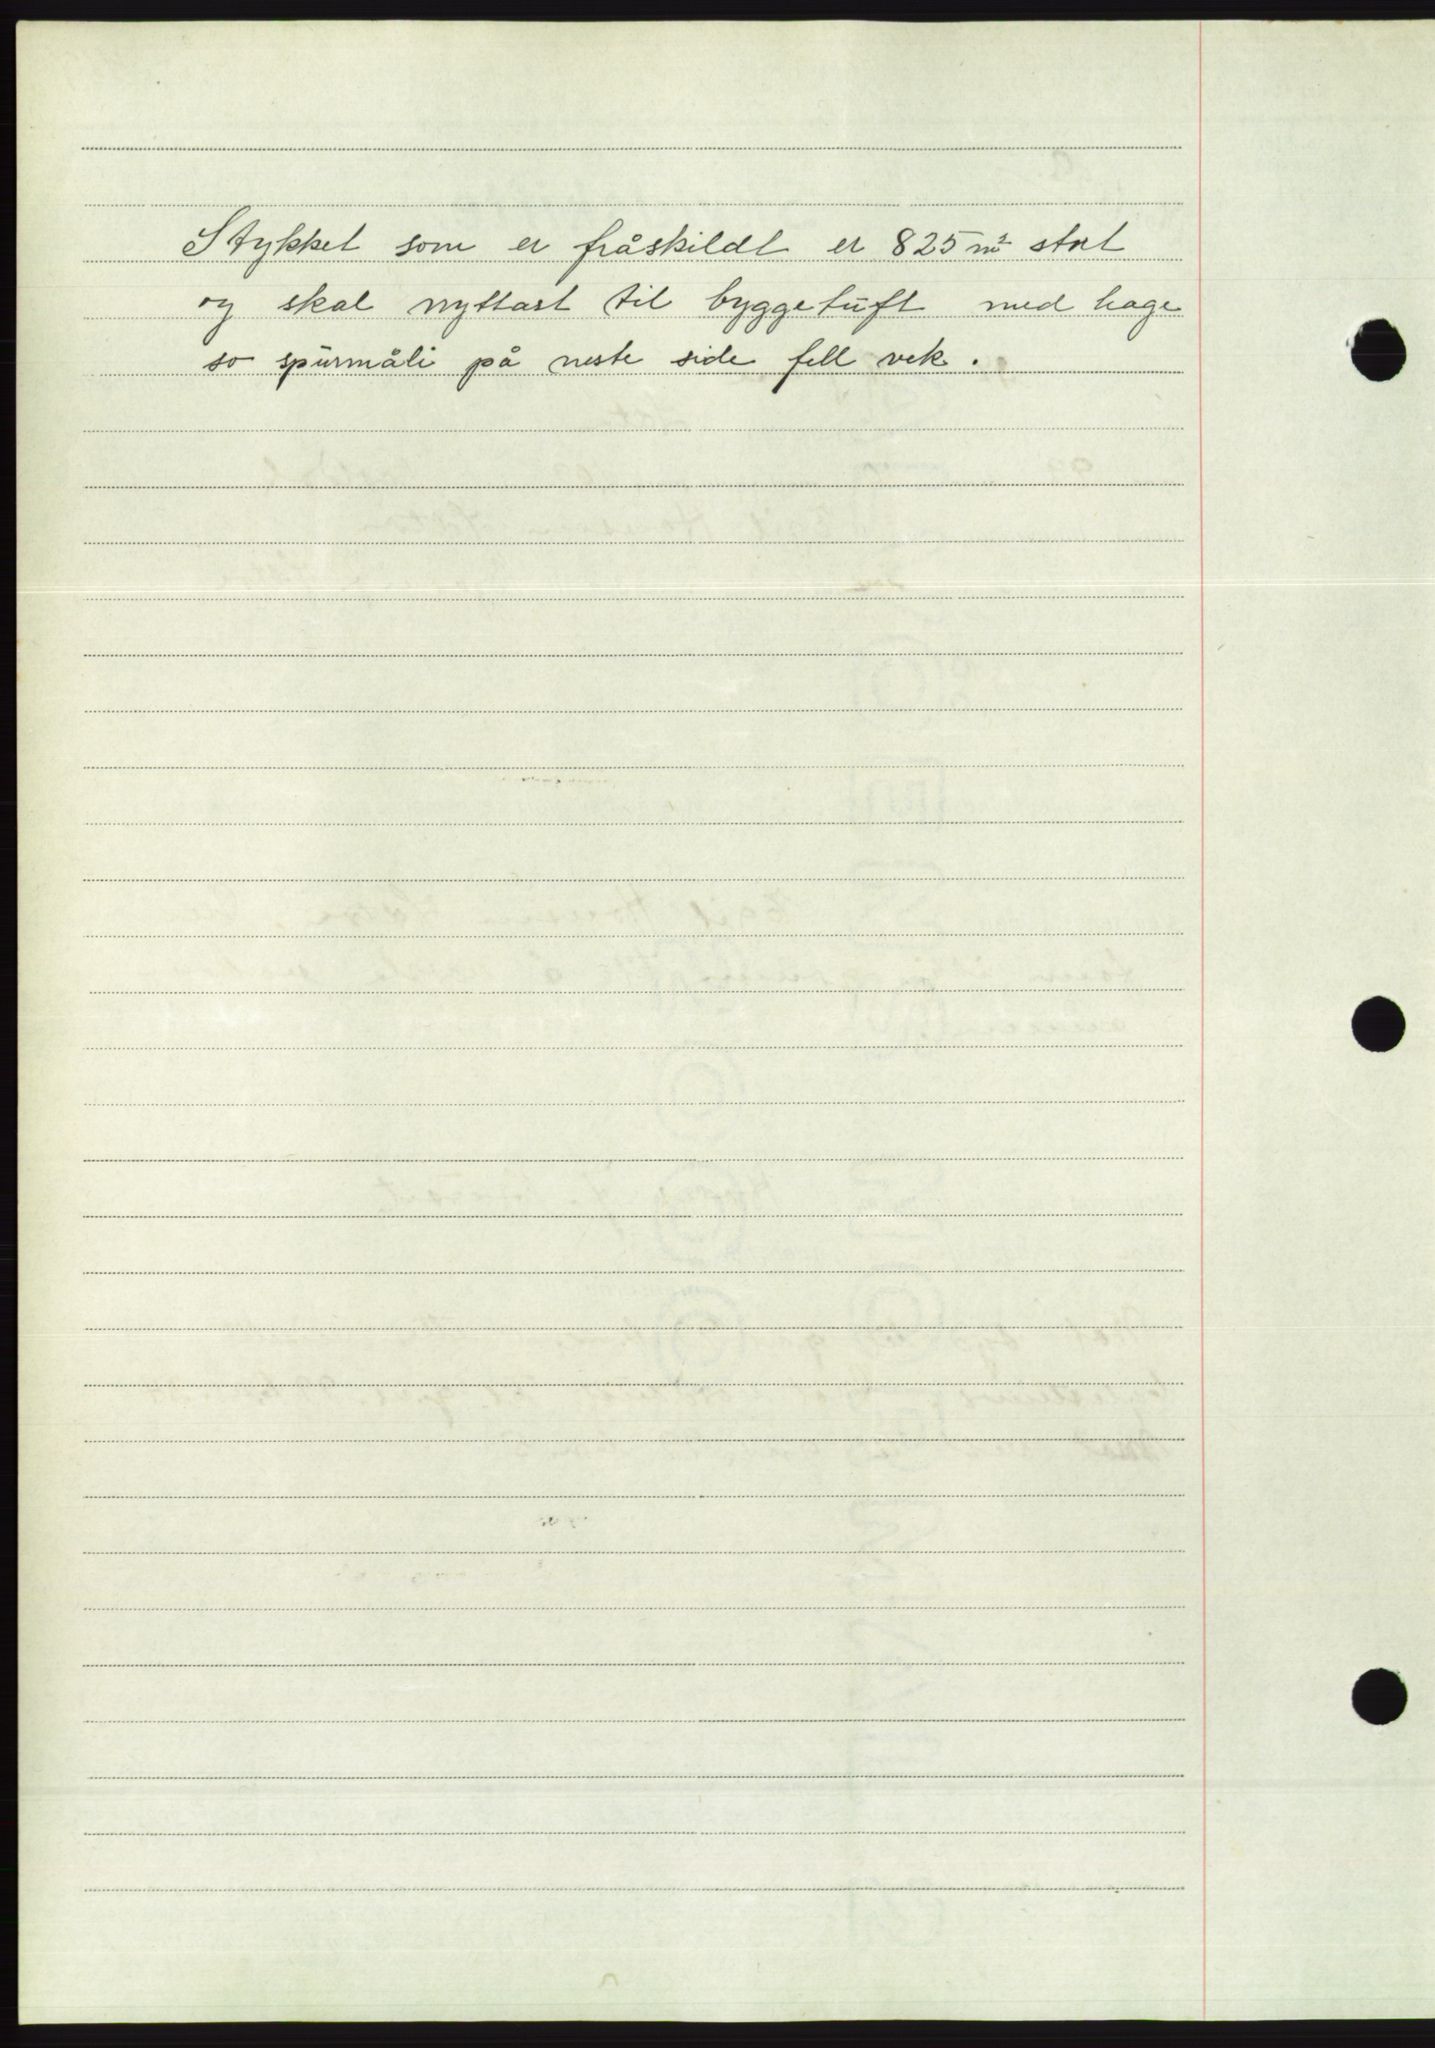 Stykket som er fråskildt er 825 m² stort
og skal nyttast til byggetuft med hage
so spürmåli på neste side fell vek.